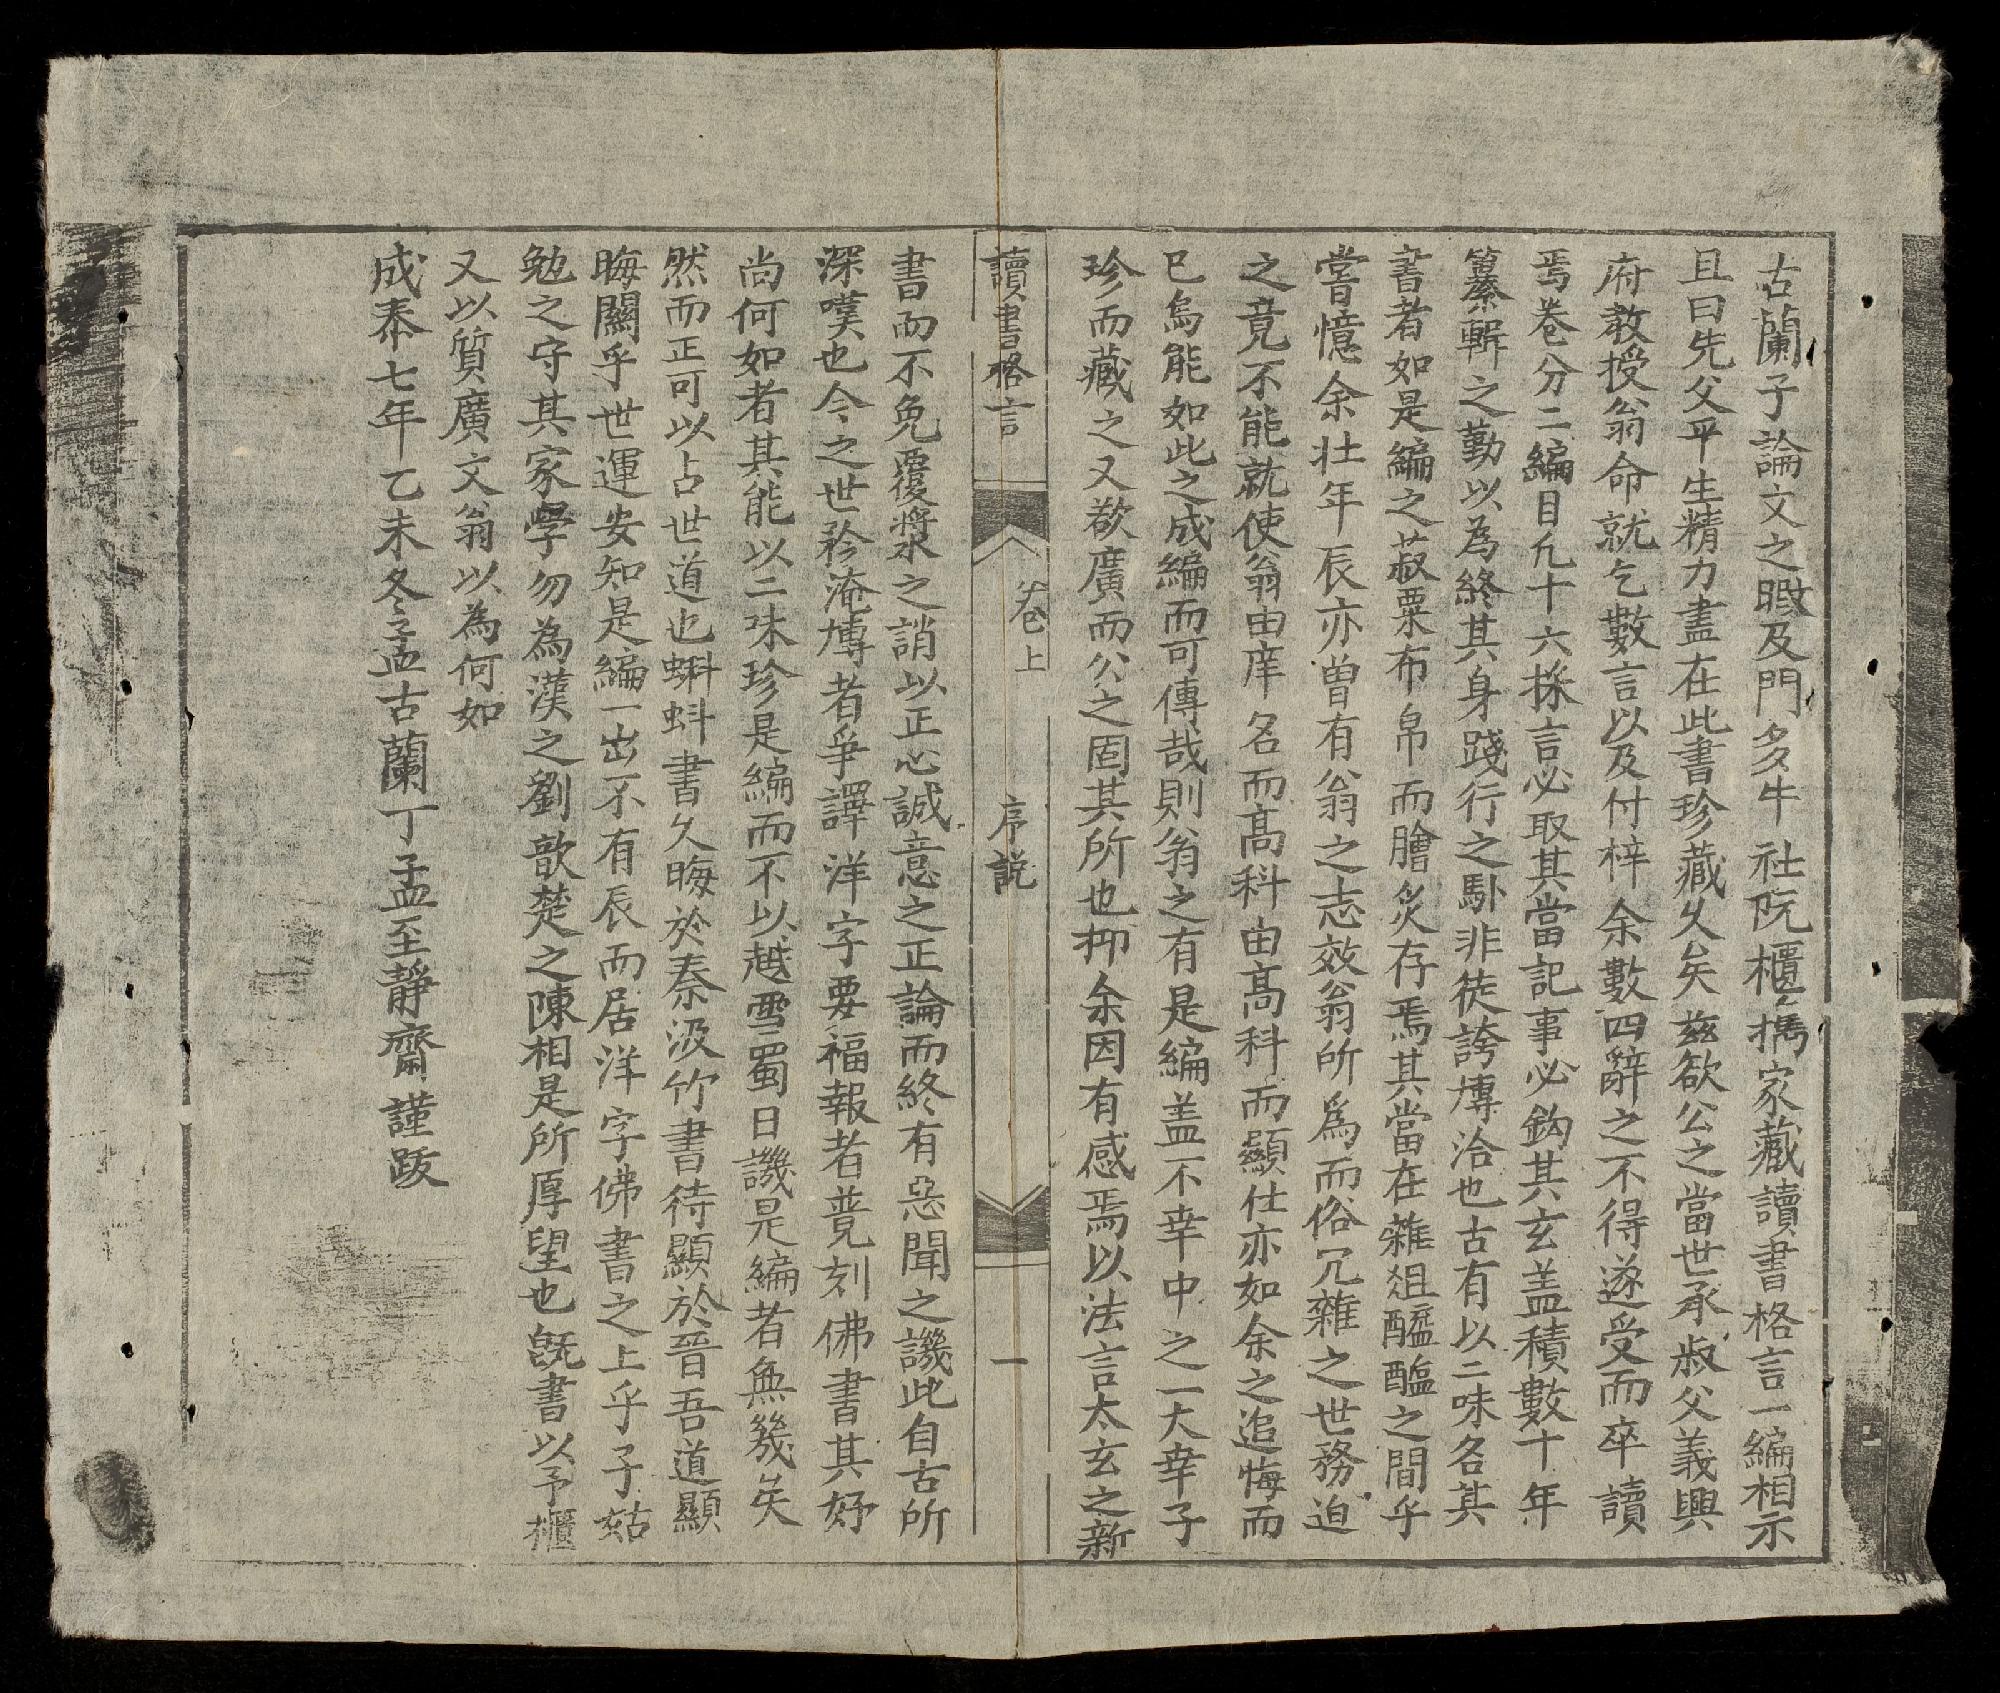 古蘭子論文之暇及門多牛社阮櫃携家藏讀書格言一編相示
且曰先父平生精力盡在此書珍藏久矣茲欲公之當世承叔父義興
府教授翁命就乞數言以及付梓余數四辭之不得遂受而卒讀
焉卷分二編目九十六採言必取其當記事必鈎其玄盖積數十年
纂輯之勤以為終其身踐行之馱非徒誇博洽也古有以二味名其
書者如是編之菽粟布帛而膾炙存焉其當在雜俎醯醢之間乎
嘗憶余壯年辰亦曾有翁之志效翁所為而俗冗雜之世務迫
之竟不能就使翁由庠名而髙科由髙科而顯仕亦如余之追悔而
已烏能如此之成編而可傳哉則翁之有是編盖不幸中之一大幸子
珍而藏之又欲廣而公之固其所也抑余因有感焉以法言太玄之新
讀書格言 卷上 序説 一
書而不免覆漿之誚以正心誠意之正論而終有惡聞之譏此自古所
深嘆也今之世矜淹博者爭譯洋字要福報者競刻佛書其好
尚何如者其能以二味珍是編而不以越雪蜀日譏是編者無幾矣
然而正可以占世道也蝌蚪書久晦於秦汲竹書待顯於晉吾道顯
晦關乎世運安知是編一出不有辰而居洋字佛書之上乎子姑
勉之守其家學勿為漢之劉歆楚之陳相是所厚望也旣書以予櫃
又以質廣文翁以為何如
成泰七年乙未冬之孟古蘭丁孟至靜齋謹跋